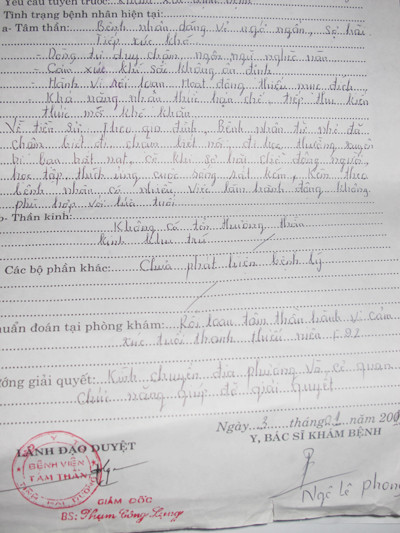 Yêu cầu tuyến trước:
Tình trạng bệnh nhân hiện tại:
a- Tâm thần: Bệnh nhân dáng vẻ ngơ ngẩn, sợ hãi
Tiếp xúc khó
- Dòng tư duy chậm, ngôn ngữ nghèo nàn
- Cảm xúc khí sắc không ổn định
- Hành vi rối loạn. Hoạt động thiếu mục đích
- Khả năng nhận thức hạn chế, tiếp thu kiến
thức mới khó khăn
Về tiền sử: Theo gia đình, Bệnh nhân từ nhỏ đã
chậm biết đi, chậm biết nói, đi học thường xuyên
bị bạn bắt nạt, có khi sợ hãi chỗ đông người,
học tập, thích ứng cuộc sống rất kém, Kèm theo
bệnh nhân có nhiều việc làm hành động không
phù hợp với lứa tuổi
b- Thần kinh: Không có tổn thương thần
kinh khu trú
Các bộ phận khác: Chưa phát hiện bệnh lý
uẩn đoán tại phòng khám: Rối loạn tâm thần hành vi cảm
xúc tuổi thanh thiếu niên
ướng giải quyết: Kính chuyển địa phương và cơ quan
chức năng giúp đỡ giải quyết
Ngày 3 tháng 01 năm 200
LÃNH ĐẠO DUYỆT
Y, BÁC SĨ KHÁM BỆNH
BỆNH VIỆN
TÂM THẦN
HẢI DƯƠNG
GIÁM ĐỐC
BS: Phạm Công Lạng
Ngô Lê Phong